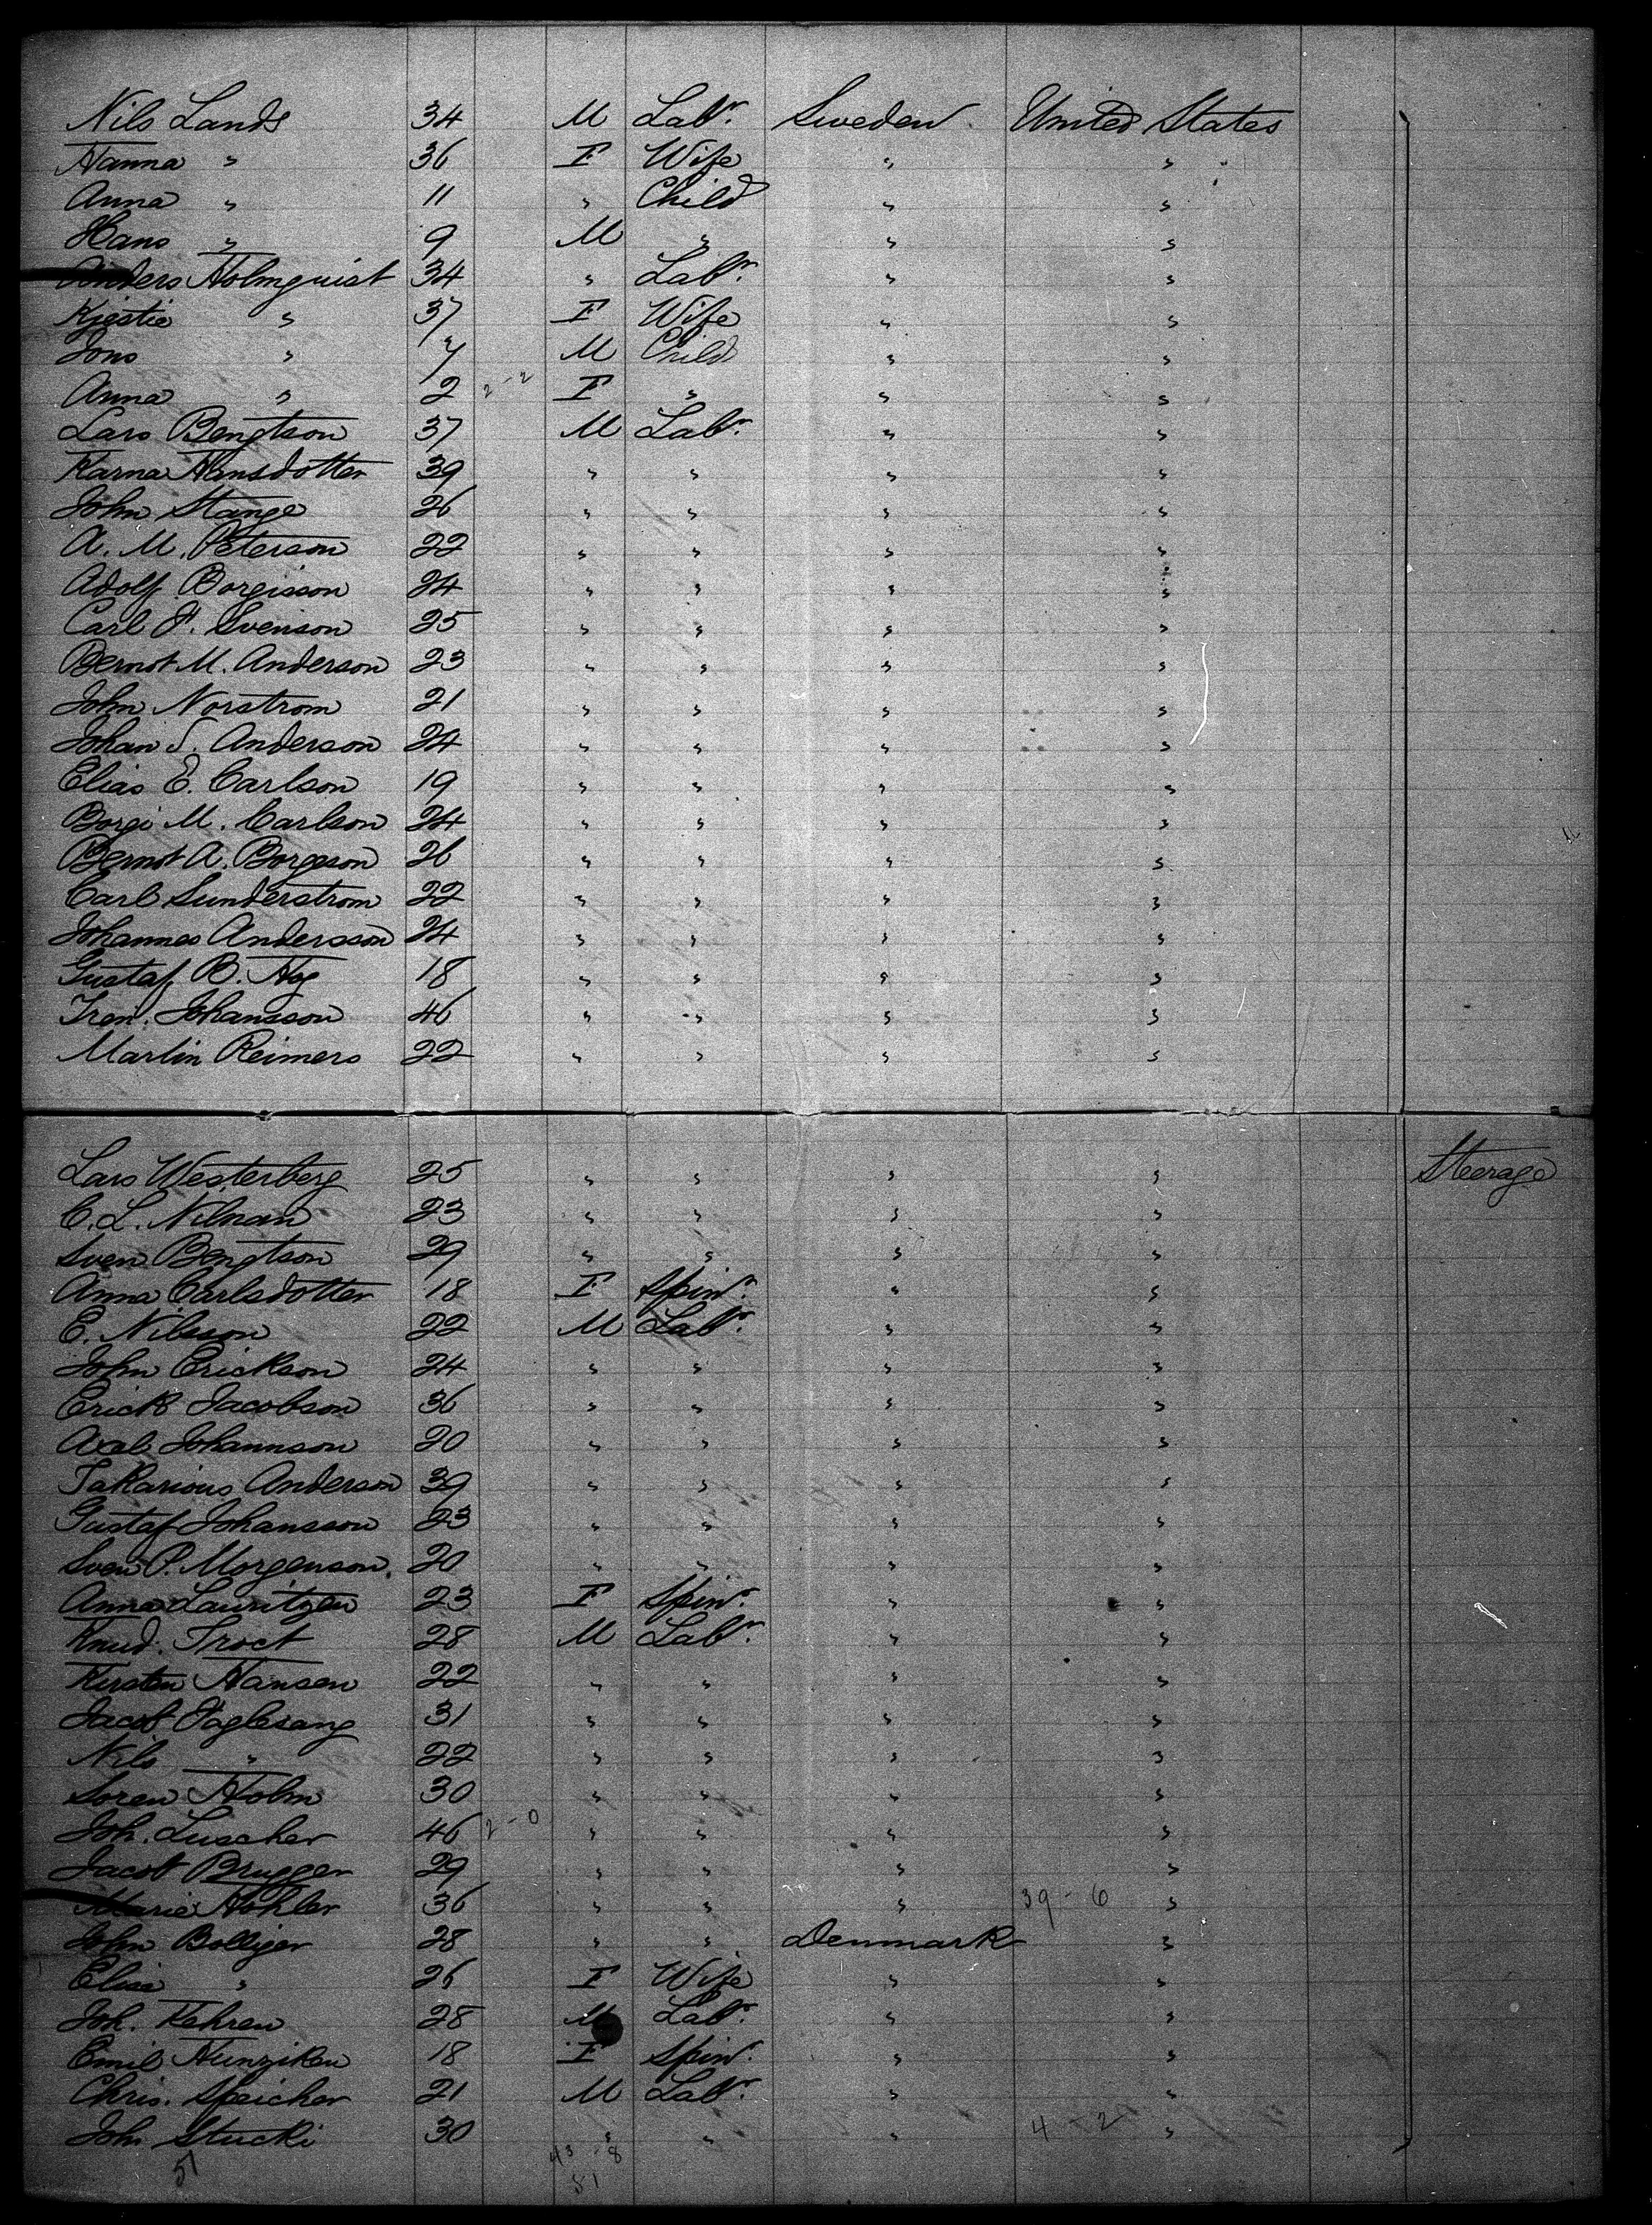 Nils Lands 34 M Labr. Sweden United States
Hanna " 36 F Wife " "
Anna " 11 " Child " "
Hans " 9 M " " "
Anders Holmquist 34 " Labr. " "
Kjestie " 37 F Wife " "
Jons " 7 M Child " "
Anna " 2 2-2 F " " "
Lars Bengtson 37 M Labr. " "
Karna Hansdotter 39 " " " "
John Stange 26 " " " "
A. M. Peterson 22 " " " "
Adolf Borgisson 24 " " " "
Carl F. Svenson 25 " " " "
Bernot M. Anderson 23 " " " "
John Norstrom 21 " " " "
Johan S. Anderson 24 " " " "
Elias E. Carlson 19 " " " "
Borgi M. Carlson 24 " " " "
Bernot A. Borgeson 26 " " " "
Carl Sunderstrom 22 " " " "
Johannes Andersson 24 " " " "
Gustaf B. Hog 18 " " " "
Johansson 46 " " " "
Martin Reimers 22 " " " "
Lars Westerberg 25 " " " " Steerage
C. L. Nilman 23 " " " "
Sven Bengtson 29 " " " "
Anna Carlsdotter 18 F Spinr. " "
E. Nilsson 22 M Labr. " "
John Erickson 24 " " " "
Erick Jacobson 36 " " " "
Axel Johannson 20 " " " "
Anderson 39 " " " "
Gustaf Johansson 23 " " " "
Sven P. Morgenson. 20 " " " "
Anna Lauritzen 23 F Spinr. " "
Knud. Troct 28 M Labr. " "
Kirsten Hansen 22 " " " "
Jacob Faglesang 31 " " " "
Nils " 22 " " " "
Soren Holm 30 " " " "
Joh. Luscher 46 2-0 " " " "
Jacob Brugger 29 " " " "
Marie Hohler 36 " " " 39-6 "
John Bolliger 28 " " Denmark "
Elise " 26 F Wife " "
Joh. Kehren 28 M Labr. " "
Emil Hunziken 18 F Spinr. " "
Chris. Speicher 21 M Labr. " "
Joh Stucki 30 " " " 4-2 "
51 43-8
81